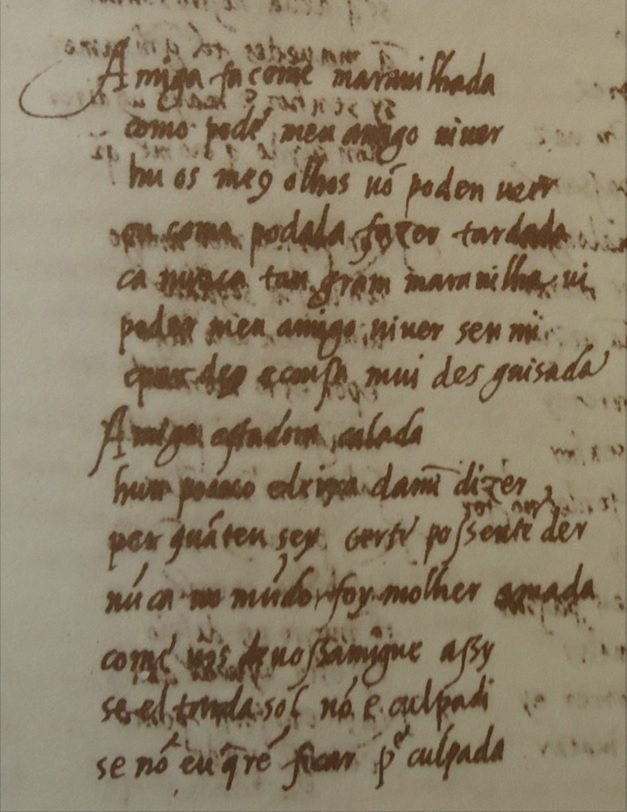 Amiga facome marauilhada
como pode meu amigo uiuer
hu os me9 olhos nō poden ueer
ou como podala fazer tardada
ca nunca tan gram marauilha ui
poder meu amigo uiuer sen mi
epar de9 e cousa mui des guisada
Amiga estade calada
huu pouco e leixa damī dizer
per quāteu sey certē possente der
nūca no mūdo foy molher amada
comē uos de uossamigue assy
se el tarda sol nō e culpadi
se nō eu q̄rē ficar pᵉʳ culpada